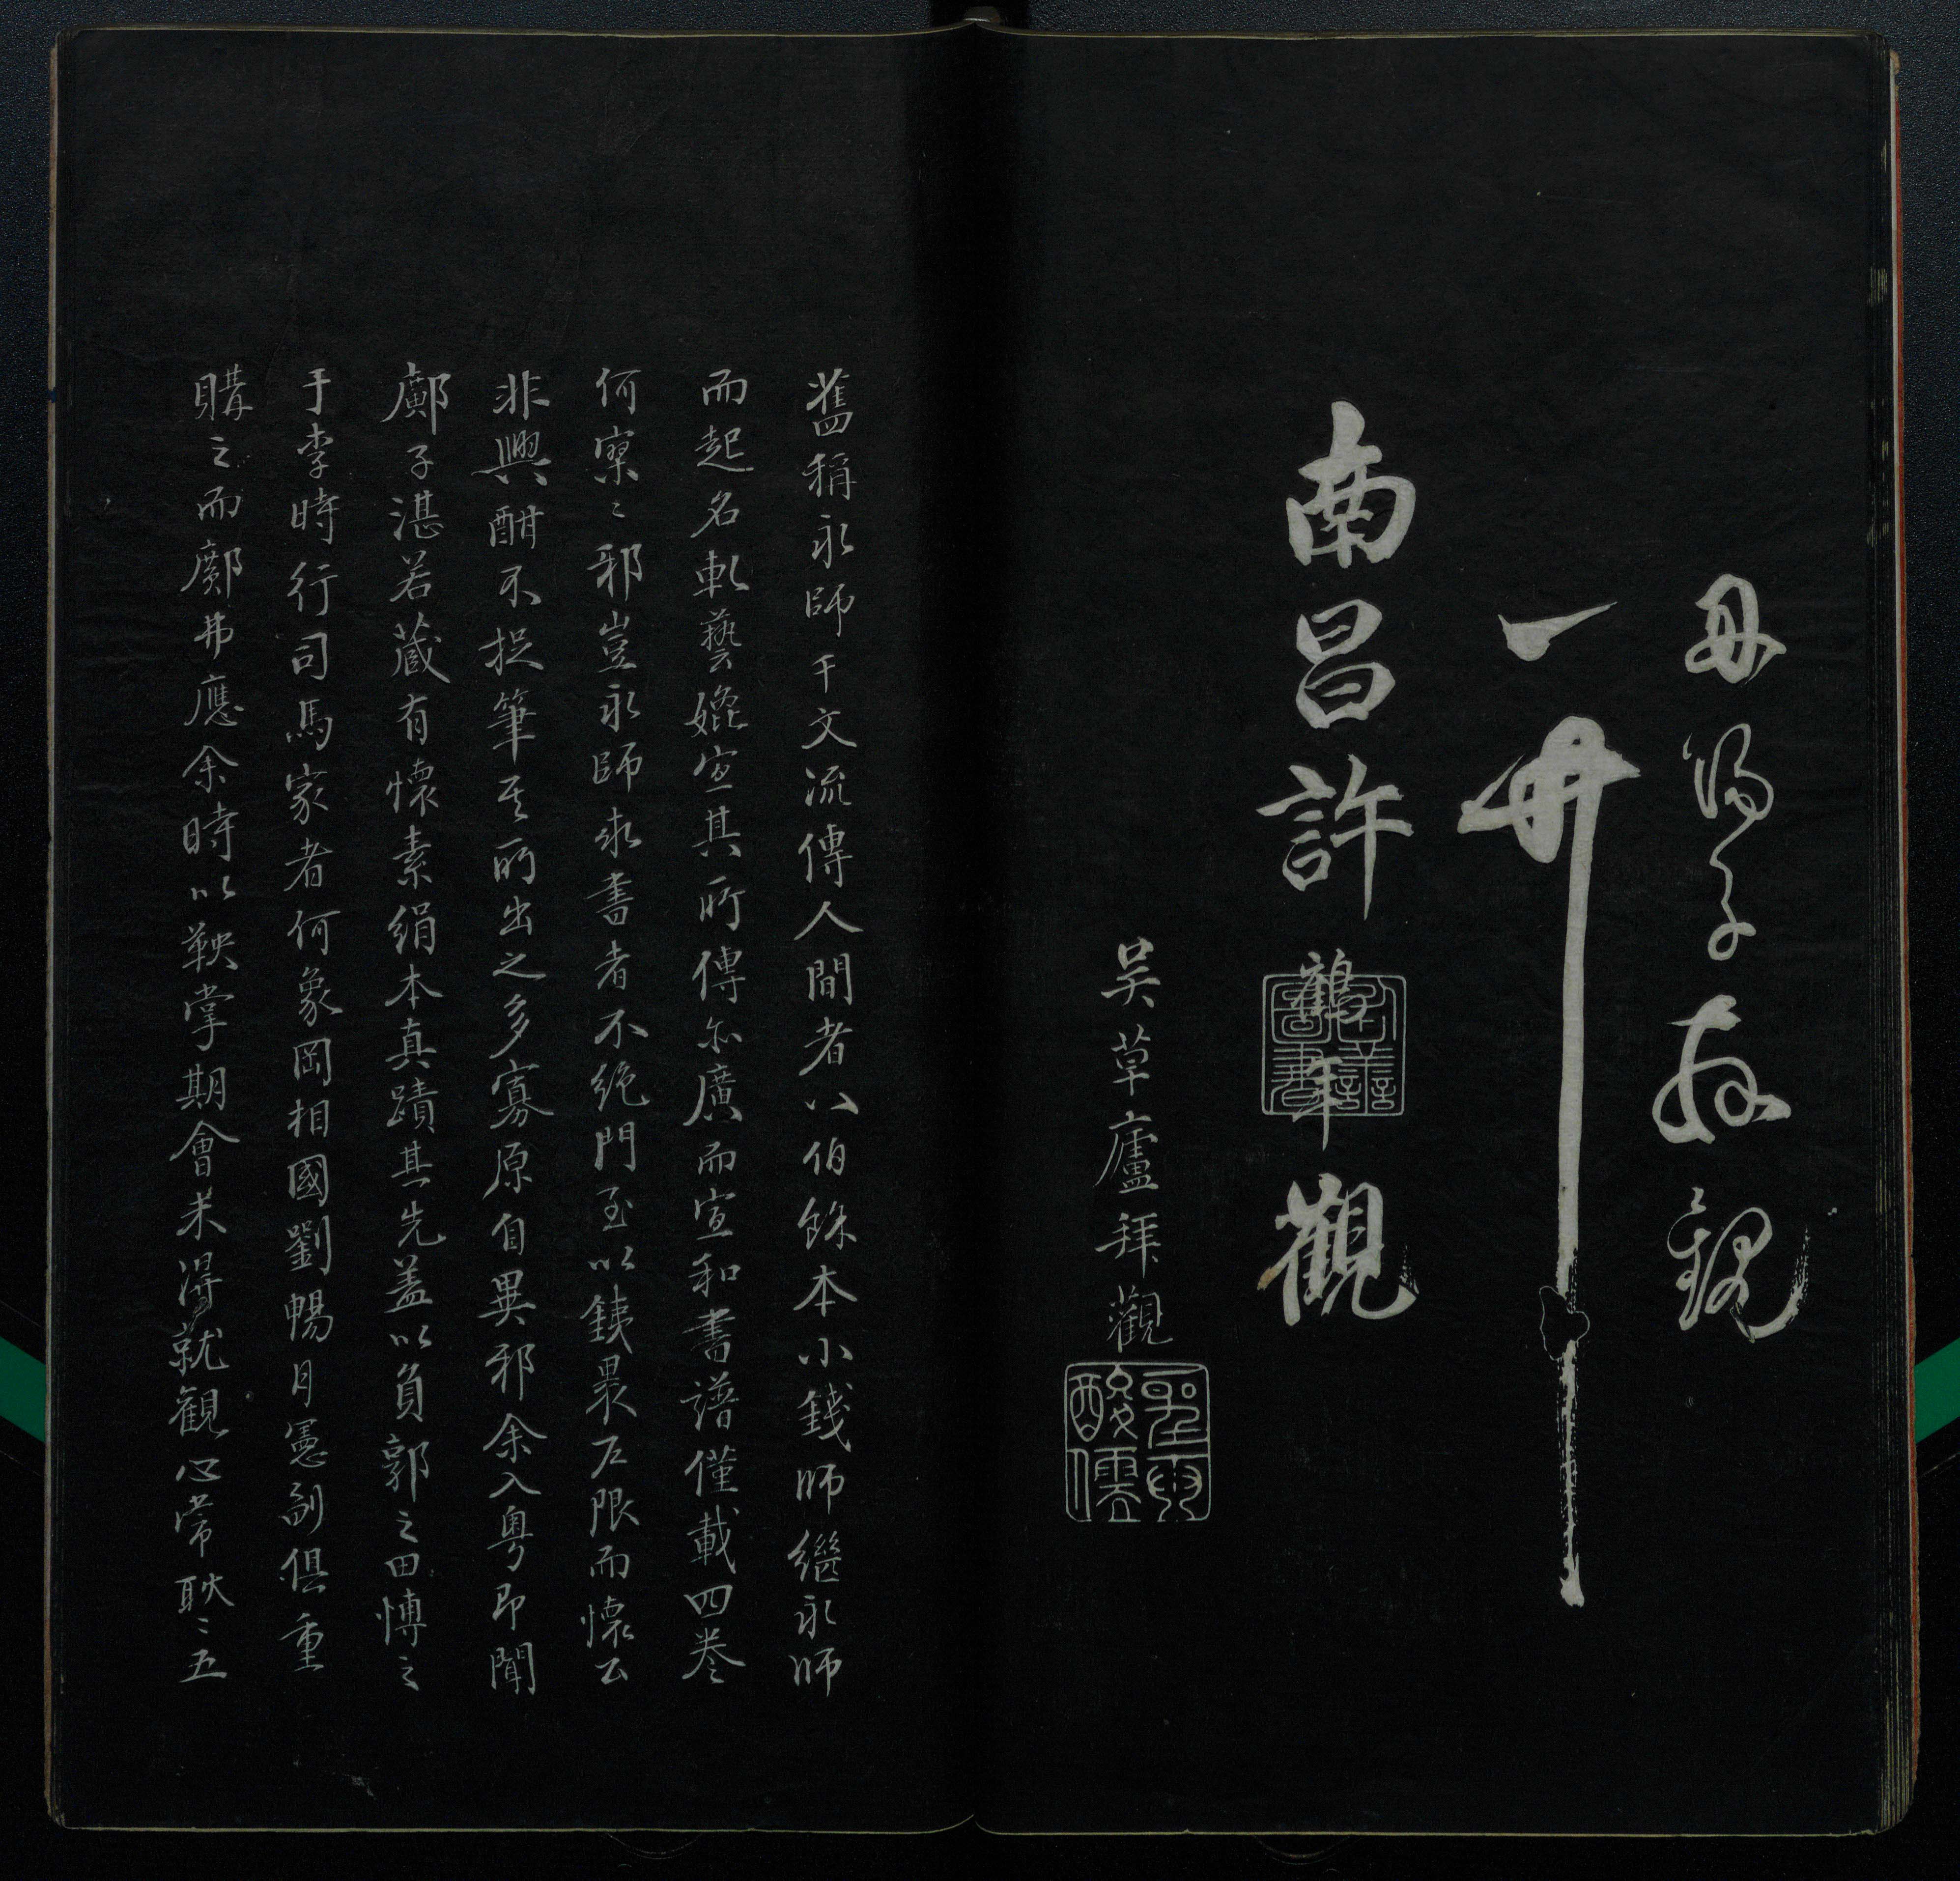 毋洛子拜觀
一冊
南昌許鶴年觀
吳草廬拜觀
舊稱永師千文流傳人間者八伯餘本小錢師繼永師
而起名軋藝媲宜其所傳亦廣而宣和書譜僅載四卷
何寥〻邪豈永師求書者不絶門至以銕裹戶限而懷公
非興酣不捉筆其所出之多寡原自異邪余入粵即聞
鄺子湛若藏有懷素絹本真蹟其先蓋以負郭之田博之
于李時行司馬家者何象岡相國劉暢月憲副俱重
購之而鄺弗應余時以鞅掌期會未得就觀心常耿〻五